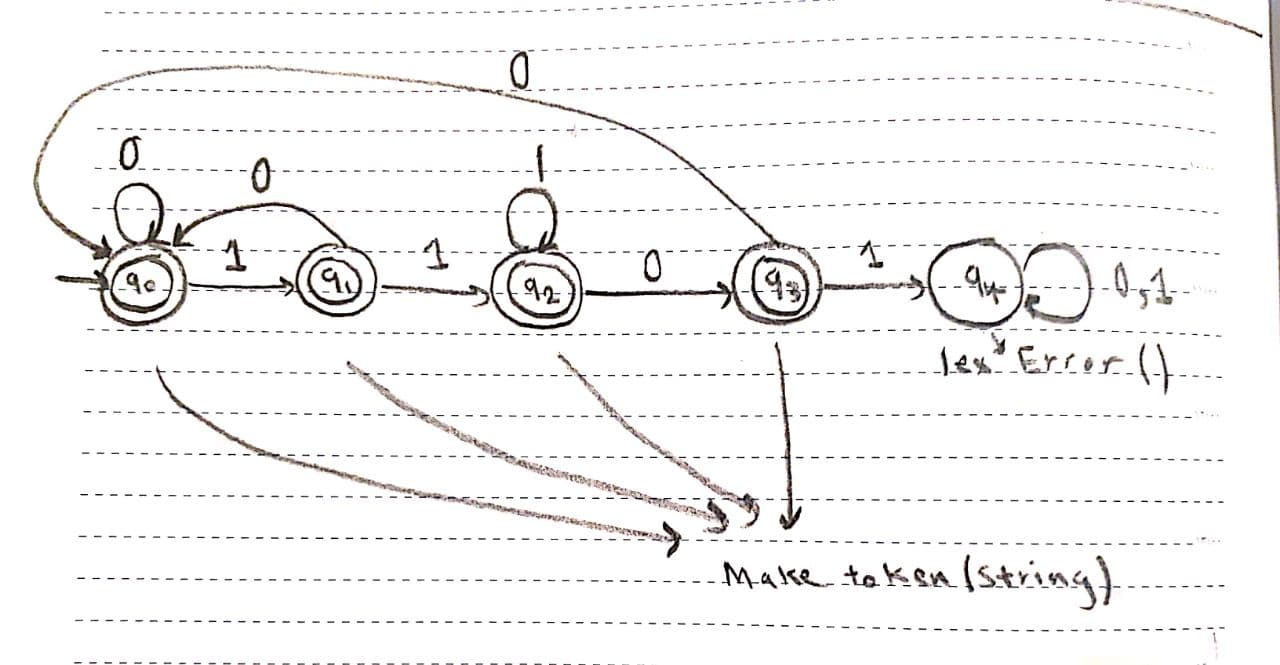 0
0
0
1
1
1
0
1
0,1
q0
q1
q2
q3
q4
lex Error()
Make token (string)